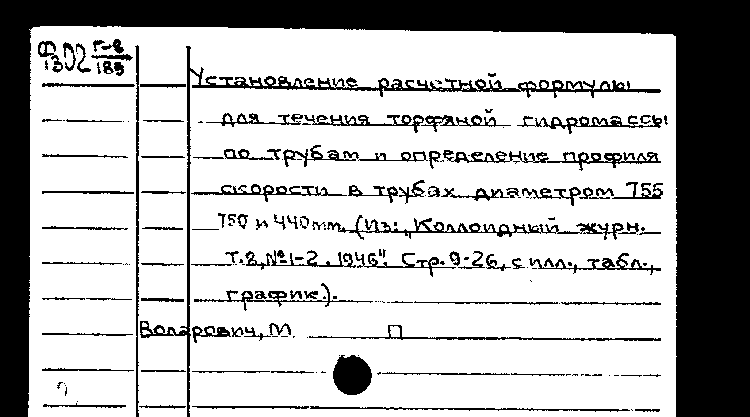 Ф 302 Г-8
13 / 183
Установление расчетной формулы
для течения торфяной гидромассы
по трубам и определение профиля
скорости в трубах диаметром 755
750 и 440мм. (Из: „Коллоидный журн.
Т.8, №1-2. 1946". Стр. 9-26, с илл., табл.,
график.).
Воларович, М П